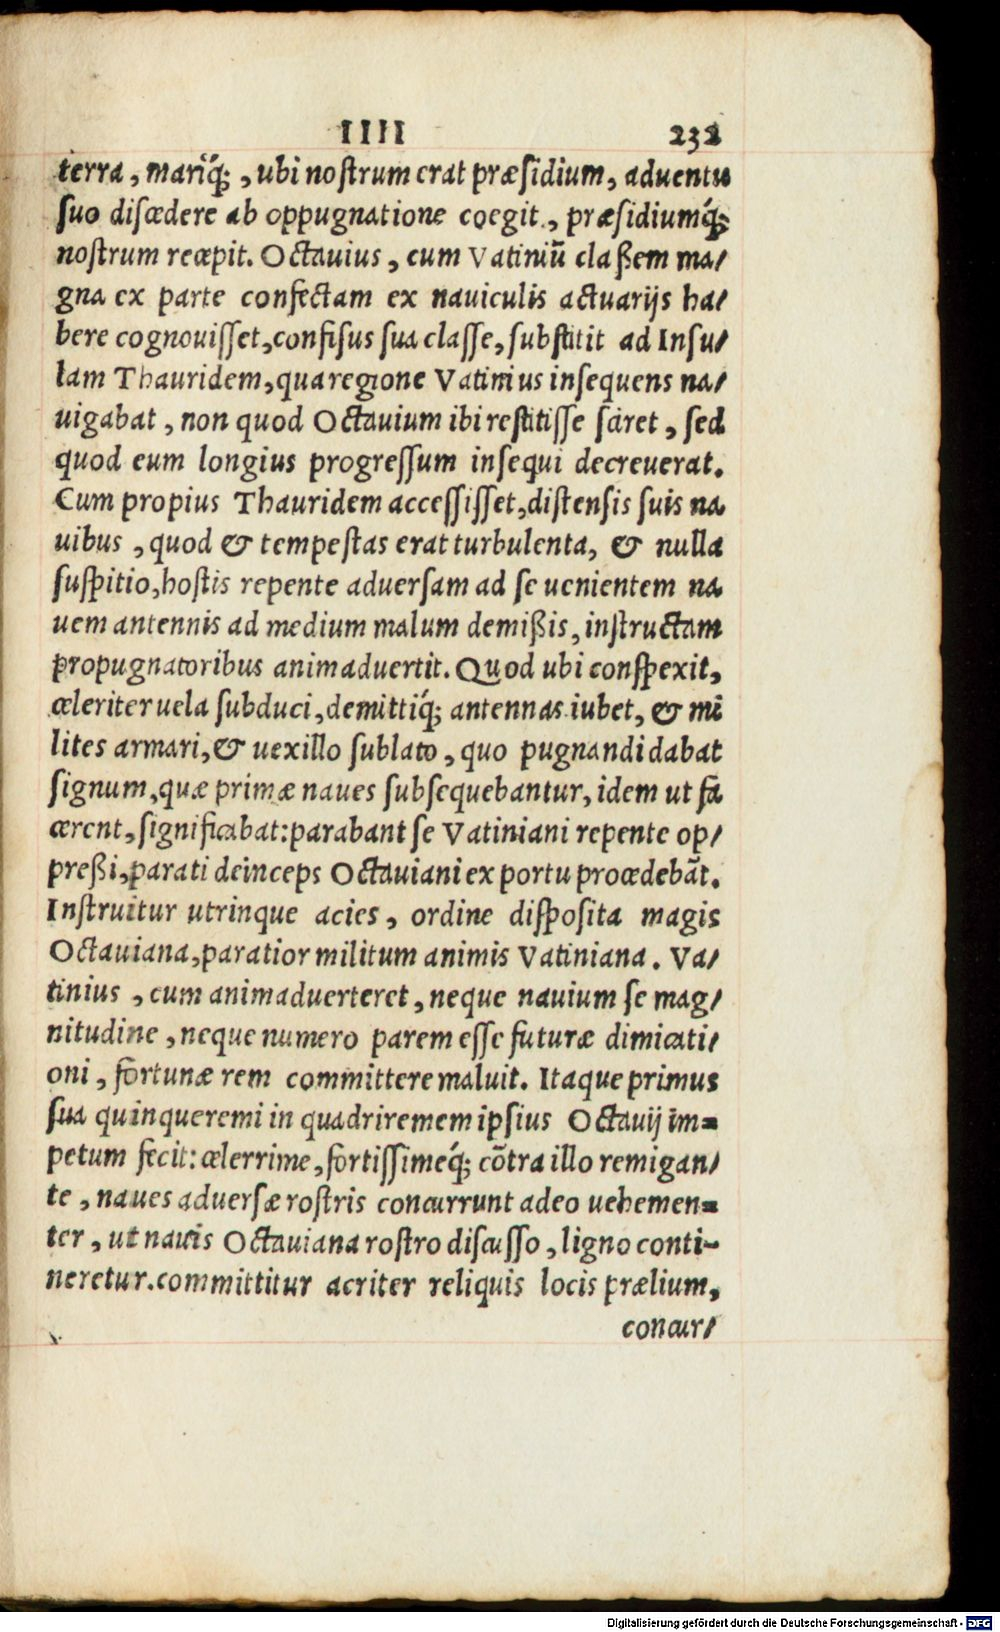 IIII 232
terra, mariq́; , ubi nostrum erat præsidium, aduentu
suo discedere ab oppugnatione coegit, præsidiumq́;
nostrum recepit. Octauius, cum Vatiniū claßem ma/
gna ex parte confectam ex nauiculis actuarijs ha/
bere cognouisset, confisus sua classe, substitit ad Insu/
lam Thauridem, qua regione Vatinius insequens na/
uigabat, non quod Octauium ibi restitisse sciret, sed
quod eum longius progressum insequi decreuerat.
Cum propius Thauridem accessisset, distensis suis na
uibus, quod & tempestas erat turbulenta, & nulla
suspitio, hostis repente aduersam ad se uenientem na
uem antennis ad medium malum demißis, instructam
propugnatoribus animaduertit. Quod ubi conspexit,
celeriter uela subduci, demittiq́; antennas iubet, & mi
lites armari, & uexillo sublato, quo pugnandi dabat
signum, quæ primæ naues subsequebantur, idem ut fa
cerent, significabat: parabant se Vatiniani repente op/
preßi, parati deinceps Octauiani ex portu procedebāt.
Instruitur utrinque acies, ordine disposita magis
Octauiana, paratior militum animis Vatiniana. Va/
tinius, cum animaduerteret, neque nauium se mag/
nitudine, neque numero parem esse futuræ dimicati/
oni, fortunæ rem committere maluit. Itaque primus
sua quinqueremi in quadriremem ipsius Octauij im=
petum fecit: celerrime, fortissimeq́; cōtra illo remigan/
te, naues aduersæ rostris concurrunt adeo uehemen=
ter, ut nauis Octauiana rostro discusso, ligno conti-
neretur. committitur acriter reliquis locis prælium,
concur/
Digitalisierung gefördert durch die Deutsche Forschungsgemeinschaft - DFG